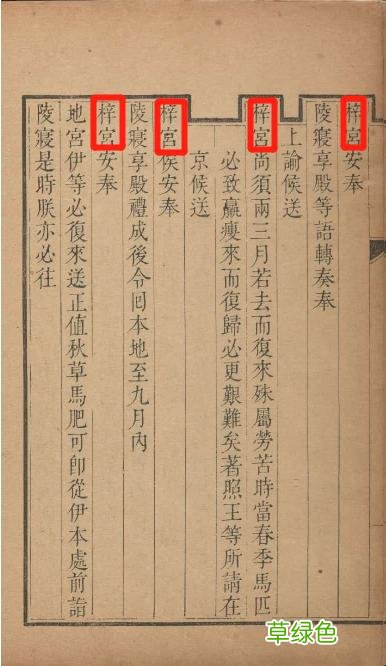 梓宮安奉
陵寢享殿等語轉奏奉
上諭候送
梓宮尚須兩三月若去而復來殊屬勞苦時當春季馬匹
必致羸瘦來而復歸必更艱難矣著照王等所請在
京候送
梓宮俟安奉
陵寢享殿禮成後令囘本地至九月內
梓宮安奉
地宮伊等必復來送正值秋草馬肥可卽從伊本處前詣
陵寢是時朕亦必往
草绿色